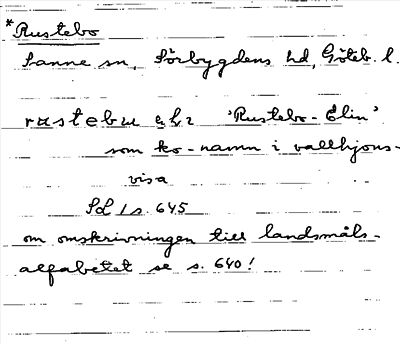 *Rustebo
Sanne sn, Sörbygdens hd, Göteb. l.
rustebu 'Rustebo-Elin'
som ko-namn i vallhjons-
visa
s. 645
om omskrivningen till landsmåls-
alfabetet se s. 640!